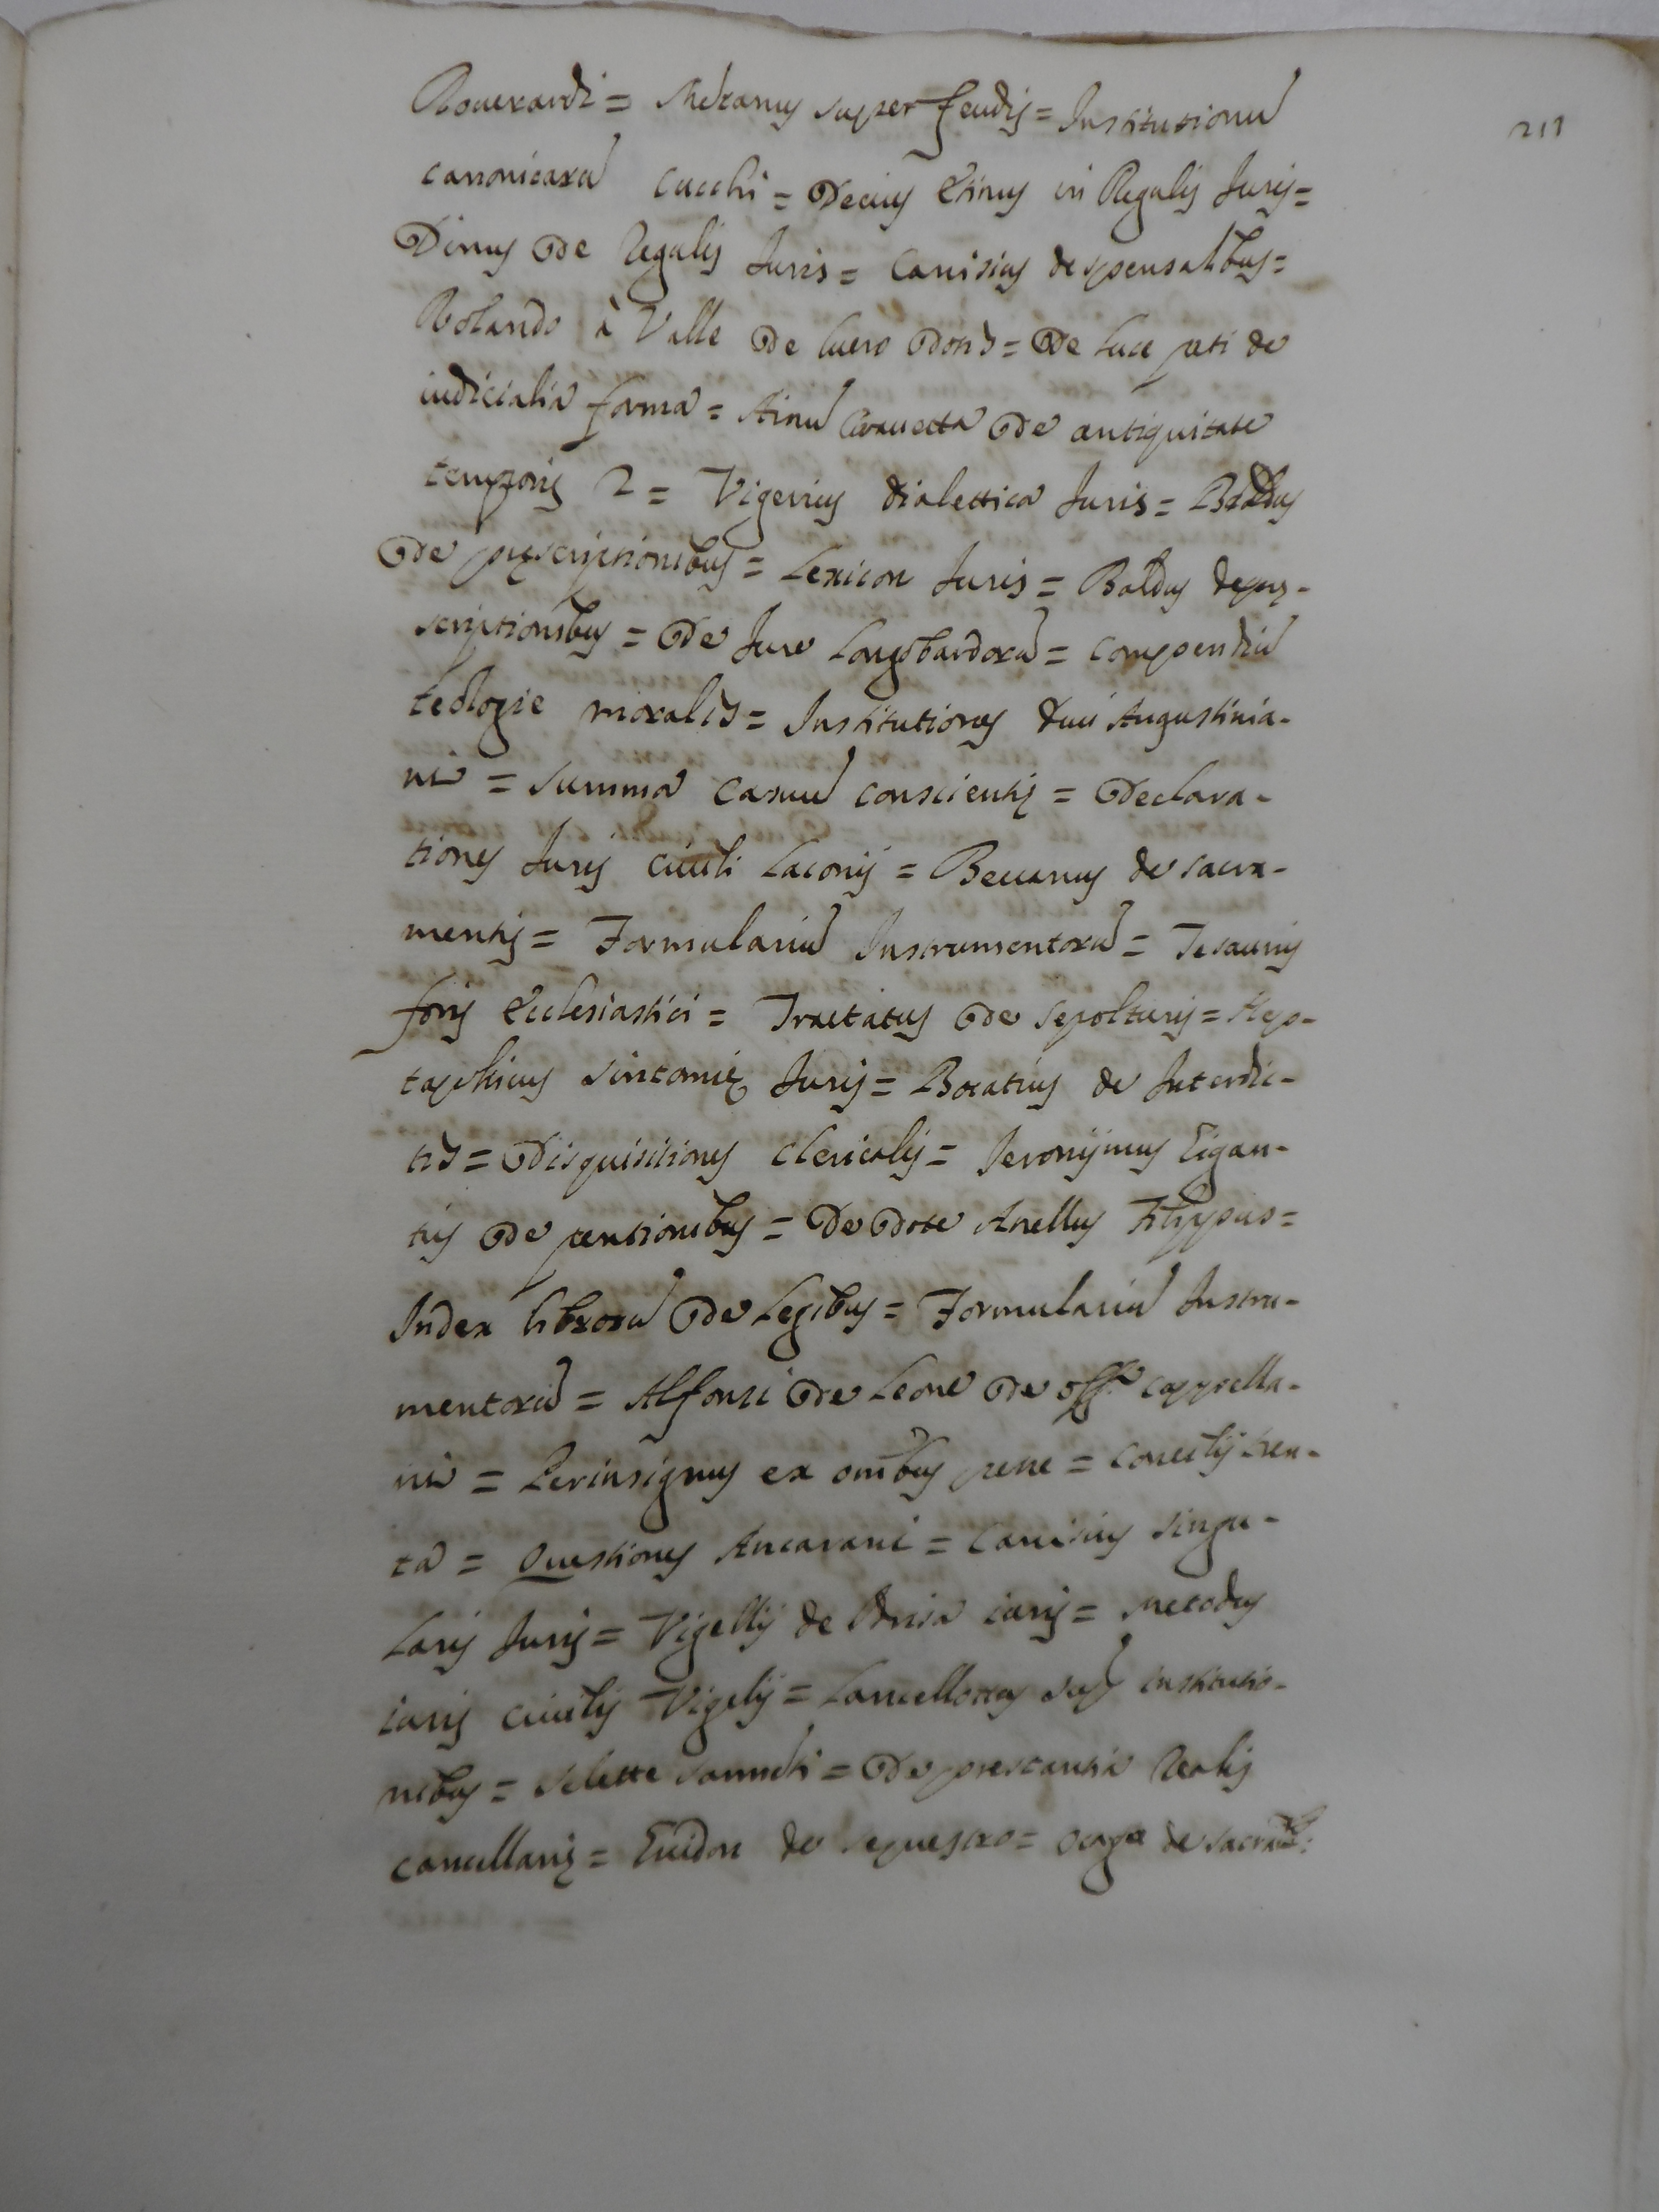 211
Rouerardi = super feudis = Institutionu
canonicaru Cucchi = Decius et in Regulis Juris =
Dinus De Regulis Juris = Canisius de sponsalibus =
Rolando à Valle De lucro Dotis = De Luca de
iudicialia forma = Crauetta De antiquitate
temporis 2 = Vigerius dialettica Juris = Baldus
De pręscriptionibus = Lexicon Juris = Baldus de prę-
scriptionibus = De Jure Longobardoru = compendiu
teologie moralis = Institutiones Augustinia-
ni = summa casuu conscientię = Declara-
tiones Juris ciuili Laconij = Becanus de sacra-
mentis = Formulariu Instrumentoru = Tesaurus
foris Ecclesiastici = Tractatus De sepolturis = Hep-
taphicus sintomię Juris = Bocatius de Interdic-
tis = Disquisitiones clericalis = Jeronijmus Gigan-
tis De pentionibus = De Dote Anellus
Index libroru De Legibus = Formulariu Instru-
mentoru = Alfonsi De Leone De off.o cappella-
ni = Perinsignus ex omibus pene =
ta = Questiones Ancarani = Canisius singu-
laris Juris = Vigellij de iuris = metodus
iuris ciuilis Vigelij = Lancellottus sup institutio-
nibus = selette = De prestantia Realis
cancellarię = Guidon de sequestro = de